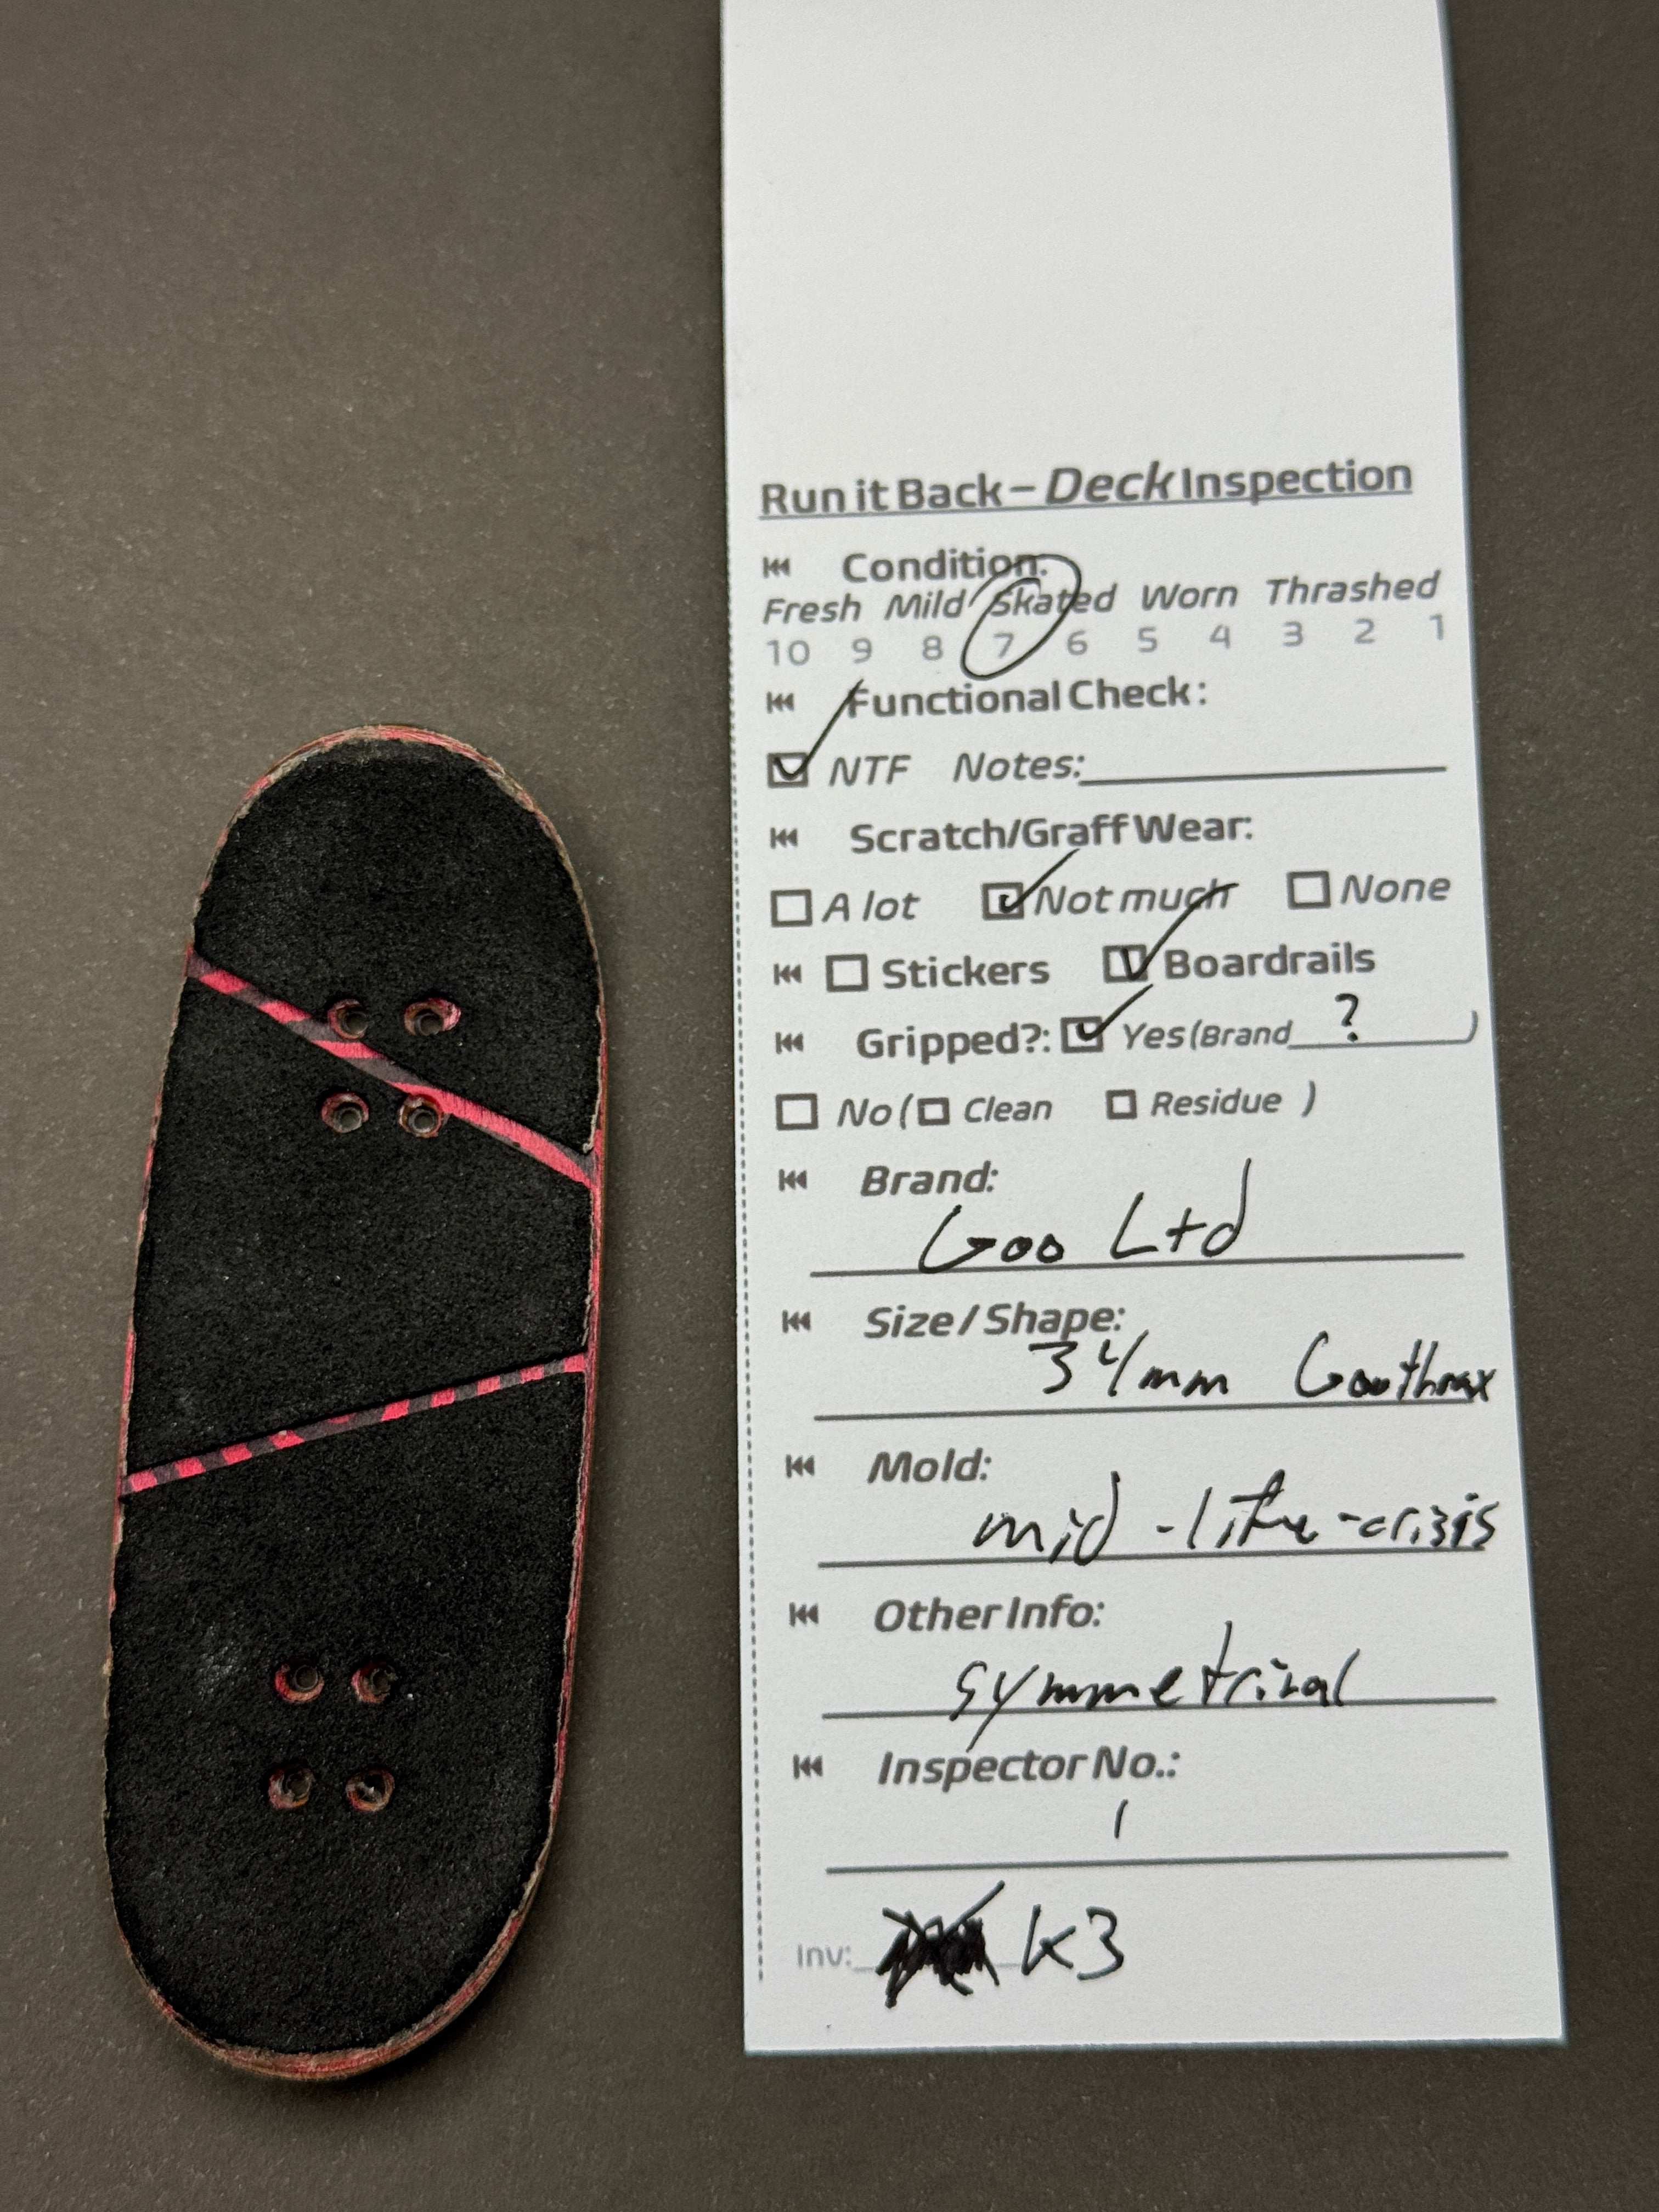 Run it Back - Deck Inspection
Condition:
Fresh Mild Skated Worn Thrashed
10 9 8 7 6 5 4 3 2 1
Functional Check:
NTF Notes:
Scratch/Graff Wear:
A lot Not much None
Stickers Boardrails
Gripped?: Yes (Brand ? )
No ( Clean Residue )
Brand:
Goo Ltd
Size / Shape:
34mm Goothrax
Mold:
mid-life-crisis
Other Info:
symmetrical
Inspector No.:
1
Inv: K3